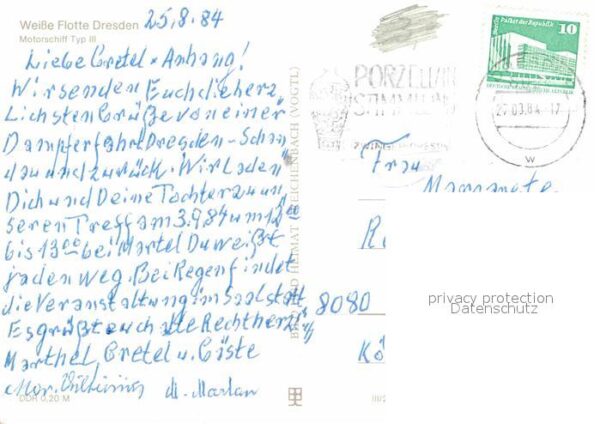 Weiße Flotte Dresden
Motorschiff Typ III
25.8.84
Liebe Gretel + Anhang!
Wir senden Euch die herz
lichsten Grüße von einer
Dampferfahrt Dresden-Schan
dau und zurück. Wir Laden
Dich und Deine Tochter zu un
seren Treff am 3.9.84 um 12⁰⁰
bis 13⁰⁰ bei Martel Du weißt
ja den weg. Bei Regen findet
die Veranstaltung im Saal statt
Es grüßt euch alle Recht herzl.
Marthel, Gretel u. Gäste
DDR 0,20 M
BILD UND HEIMAT REICHENBACH (VOGTL)
PORZELLAN
SAMMLUNG
Palast der Republik
10
-17
W
Frau
Margarete
8080
Kö
III/2
privacy protection
Datenschutz